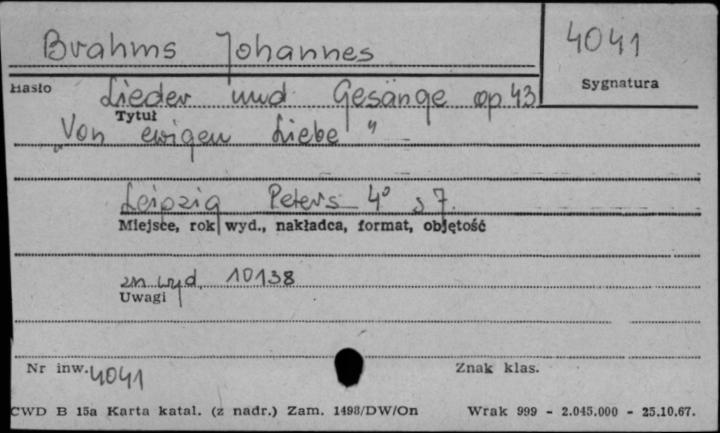 Brahms Johannes
4041
Hasło
Sygnatura
Lieder und Gesänge op 43
Tytuł
"Von ewigen Liebe"
Leipzig Peters 4° s 7.
Miejsce, rok wyd., nakładca, format, objętość
zn wyd. 10138
Uwagi
Nr inw. 4041
Znak klas.
CWD B 15a Karta katal. (z nadr.) Zam. 1498/DW/On Wrak 999 - 2.045.000 - 25.10.67.